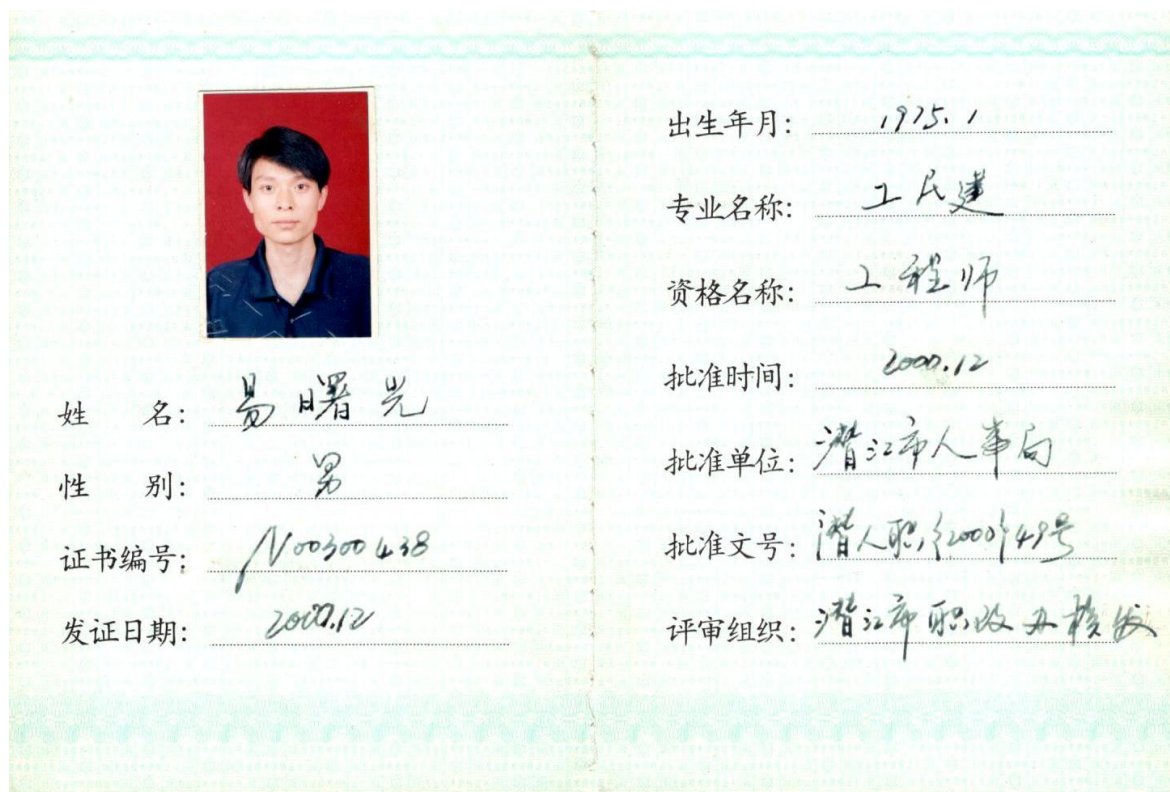 姓 名: 易曙光
性 别: 男
证书编号: N00300438
发证日期: 2000.12
出生年月: 1975.1
专业名称: 工民建
资格名称: 工程师
批准时间: 2000.12
批准单位: 潜江市人事局
批准文号: 潜人职〔2000〕49号
评审组织: 潜江市职改办核发